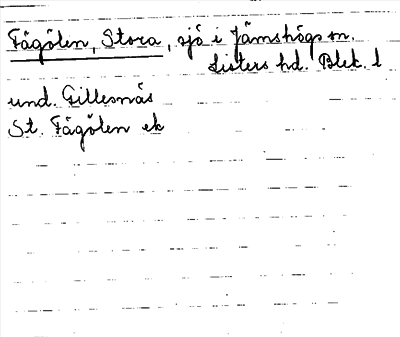 Fågölen, Stora, sjö i Jämshögs sn.
Listers hd. Blek. l
und. Gillesnäs
St. Fågölen ek